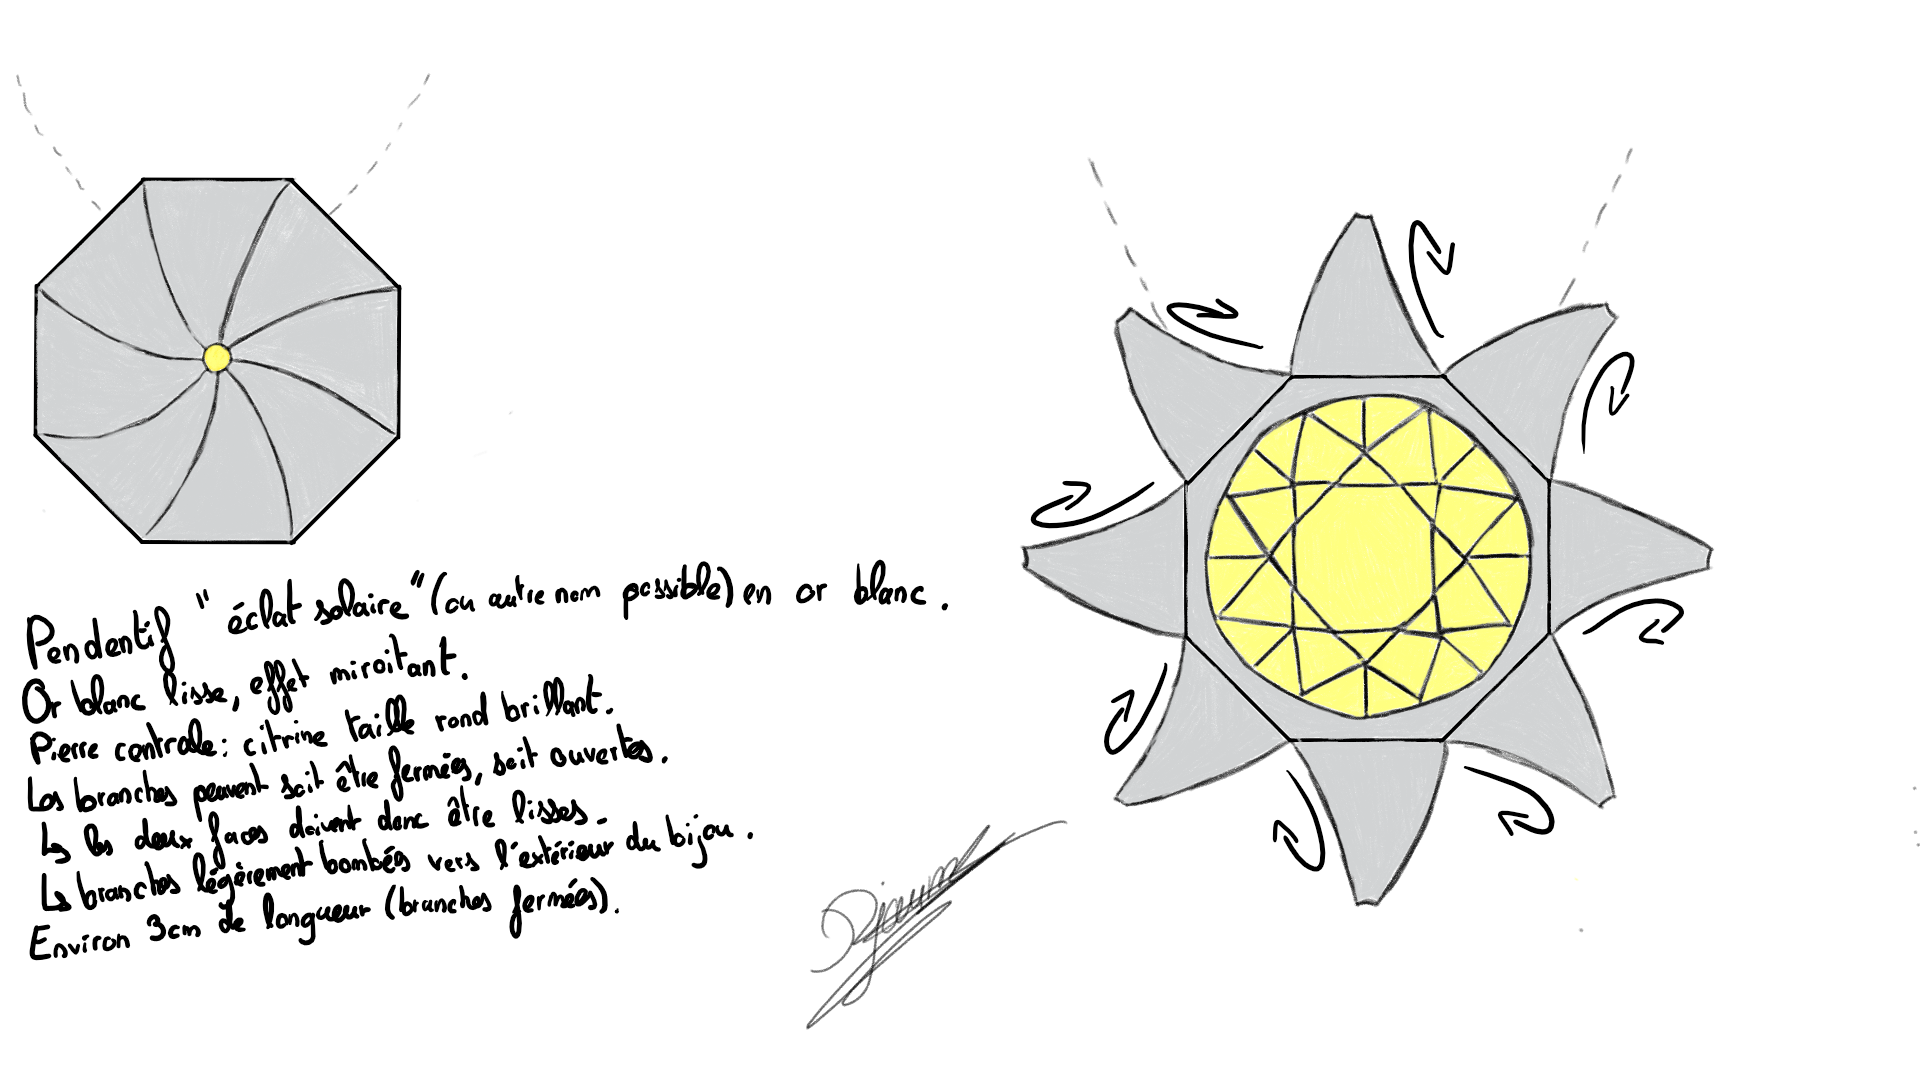 Pendentif "éclat solaire" (ou autre nom possible) en or blanc.
Or blanc lisse, effet miroitant.
Pierre centrale : citrine taille rond brillant.
Les branches peuvent soit être fermées, soit ouvertes.
↳ les deux faces doivent donc être lisses.
↳ branches légèrement bombées vers l'extérieur du bijou.
Environ 3cm de longueur (branches fermées).